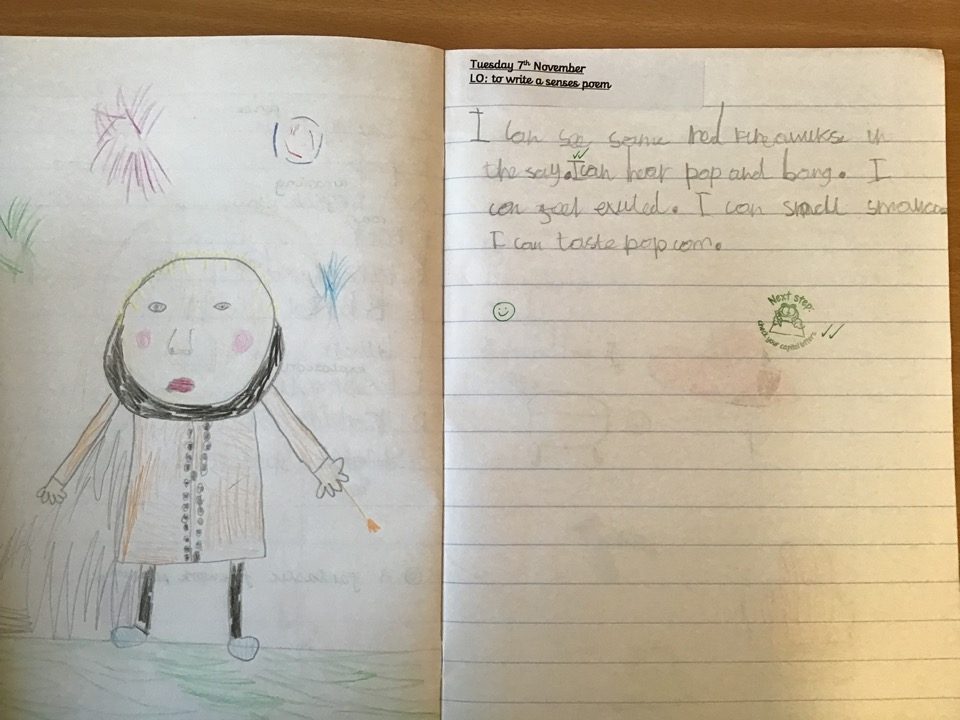 Tuesday 7th November
LO: to write a senses poem
I can see some red fireawukse in
the say. I can hear pop and bang. I
can feel exuled. I can smell smoke
I can taste pop corn.
Next step:
check your capital letters